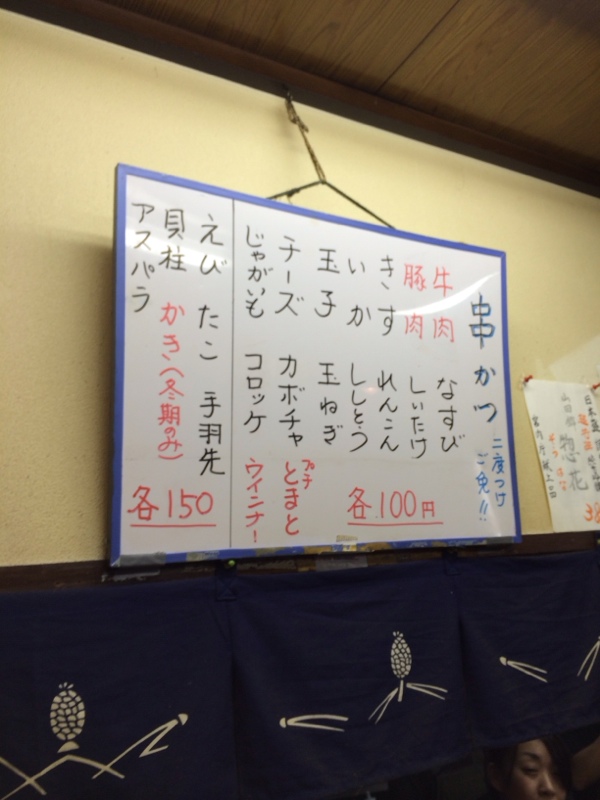 串かつ 二度つけ
ご免!!
牛肉 なすび
豚肉 しいたけ
きす れんこん
いか ししとう
玉子 玉ねぎ
チーズ カボチャ プチとまと
じゃがいも コロッケ ウインナー
各100円
えび たこ 手羽先
貝柱 かき(冬期のみ)
アスパラ
各150
日本盛
山田錦
惣花
そうはな